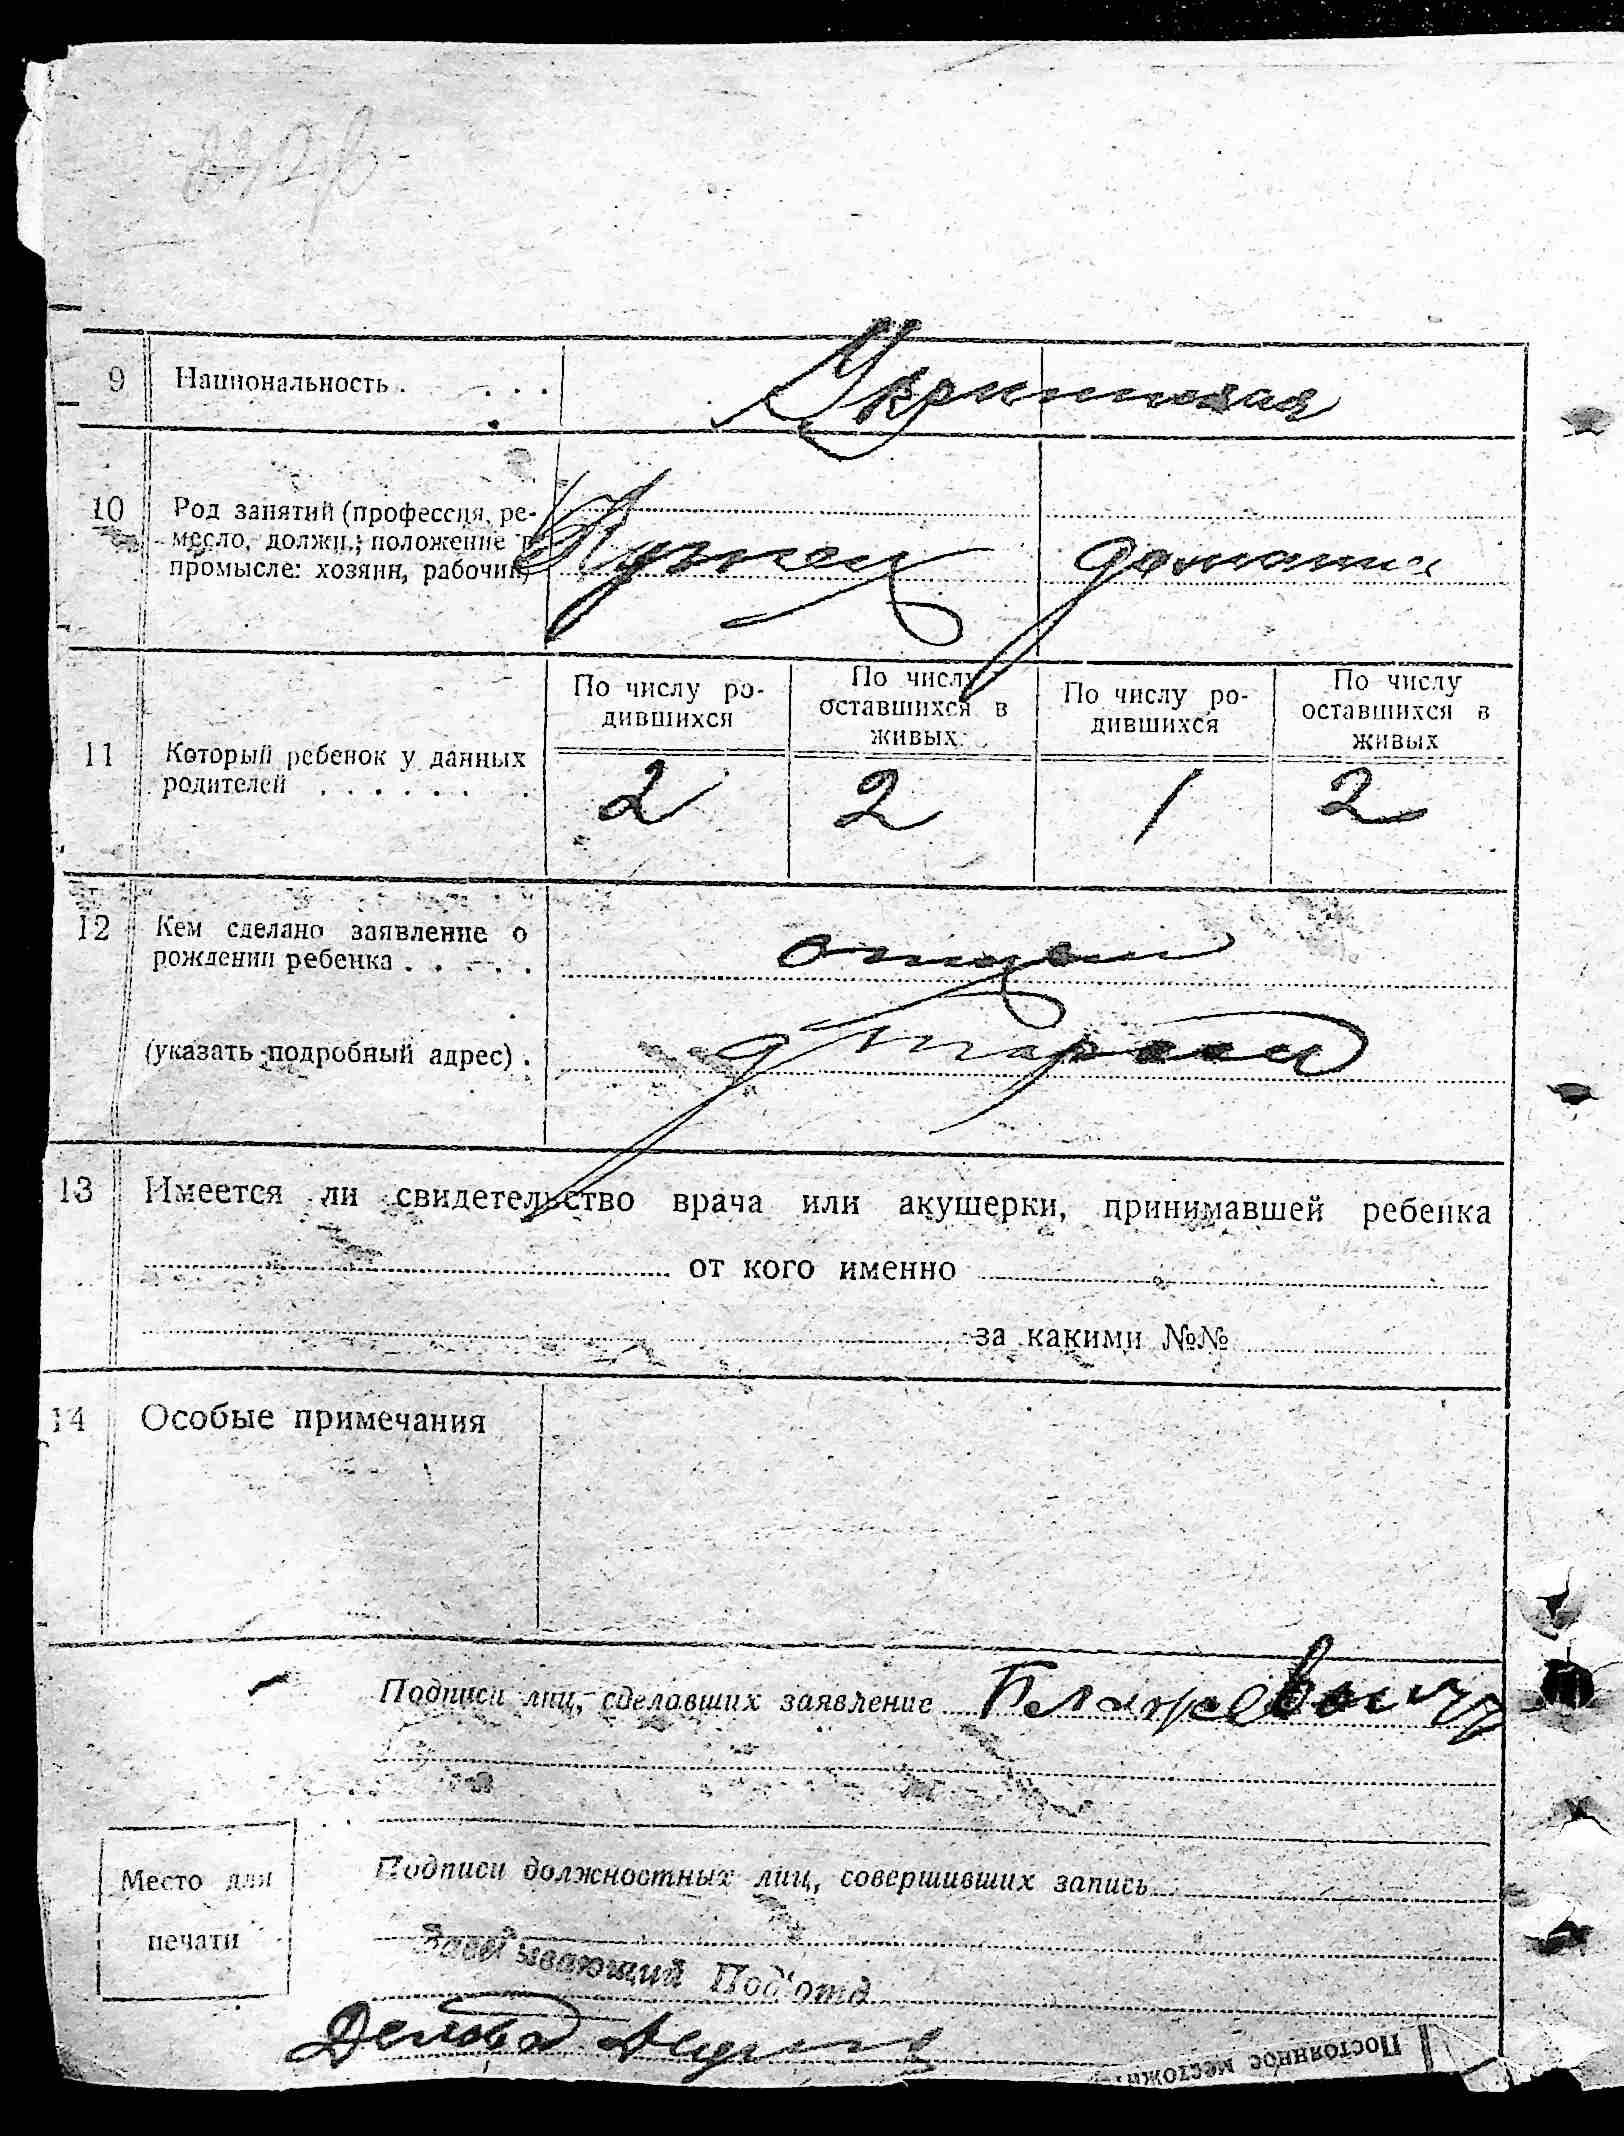 9 Национальность . . . . Украинская
10 Род занятий (профессия, ре-
месло, должн.; положение в
промысле: хозяин, рабочий) Кузнец домашн
11 Который ребенок у данных
родителей . . . . . .
По числу ро-
дившихся
По числу
оставшихся в
живых
По числу ро-
дившихся
По числу
оставшихся в
живых
2 2 1 2
12 Кем сделано заявление о
рождении ребенка . . . . . отцом
(указать подробный адрес) .
13 Имеется ли свидетельство врача или акушерки, принимавшей ребенка
от кого именно
за какими №№
14 Особые примечания
Подписи лиц, сделавших заявление Блажевыч
Место для
печати
Подписи должностных лиц, совершивших запись
Заведывающий Под'отд
Постоянное местожи